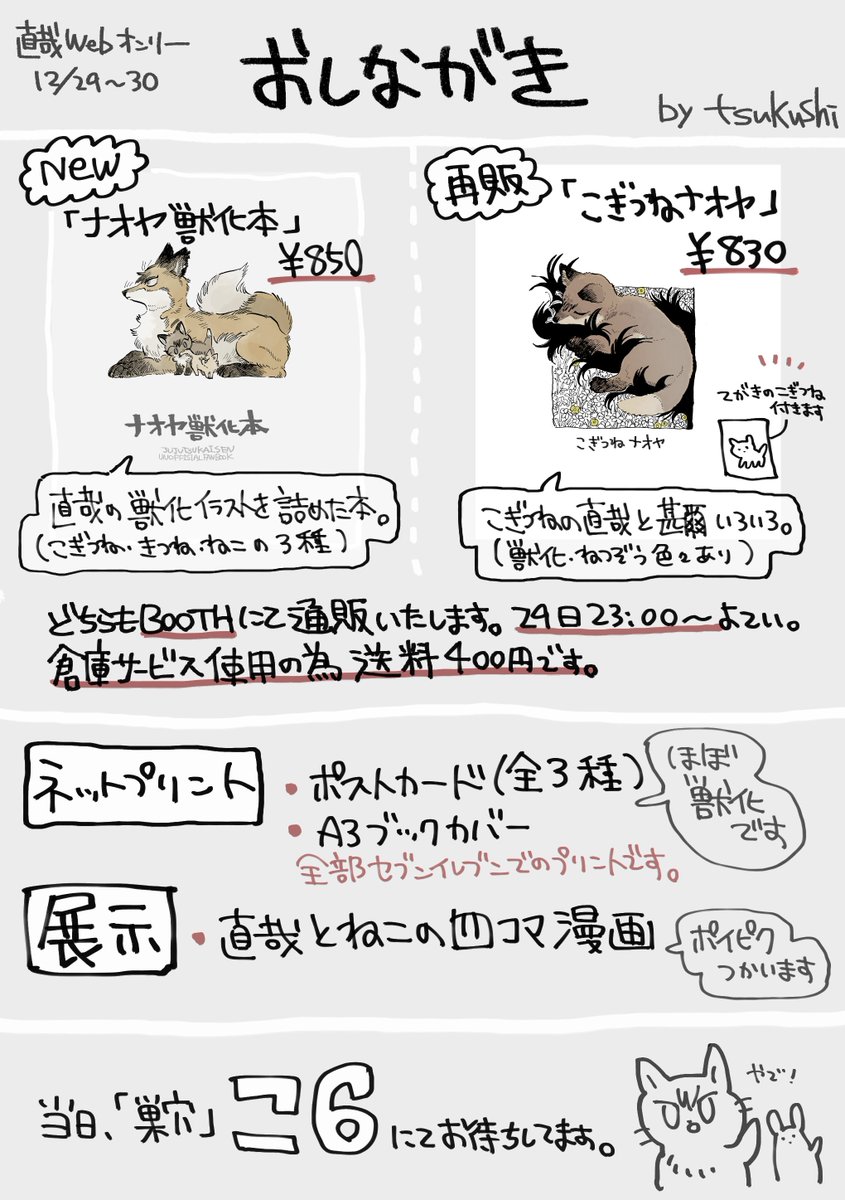 直哉Webオンリー
12/29〜30
おしながき
by tsukushi
New
「ナオヤ獣化本」
¥850
ナオヤ獣化本
JUJUTSUKAISEN
UNOFFICIAL FANBOOK
直哉の獣化イラストを詰めた本。
(こぎつね・きつね・ねこの3種)
再販
「こぎつねナオヤ」
¥830
てがきのこぎつね
付きます
こぎつねナオヤ
こぎつねの直哉と甚爾いろいろ。
(獣化・ねつぞう色々あり)
どちらもBOOTHにて通販いたします。29日23:00〜よてい。
倉庫サービス使用の為送料400円です。
ネットプリント
・ポストカード(全3種)
・A3ブックカバー
全部セブンイレブンでのプリントです。
ほぼ
獣化
です
展示
・直哉とねこの四コマ漫画
ポイピク
つかいます
当日、「巣穴」こ6にてお待ちしてます。
やで!